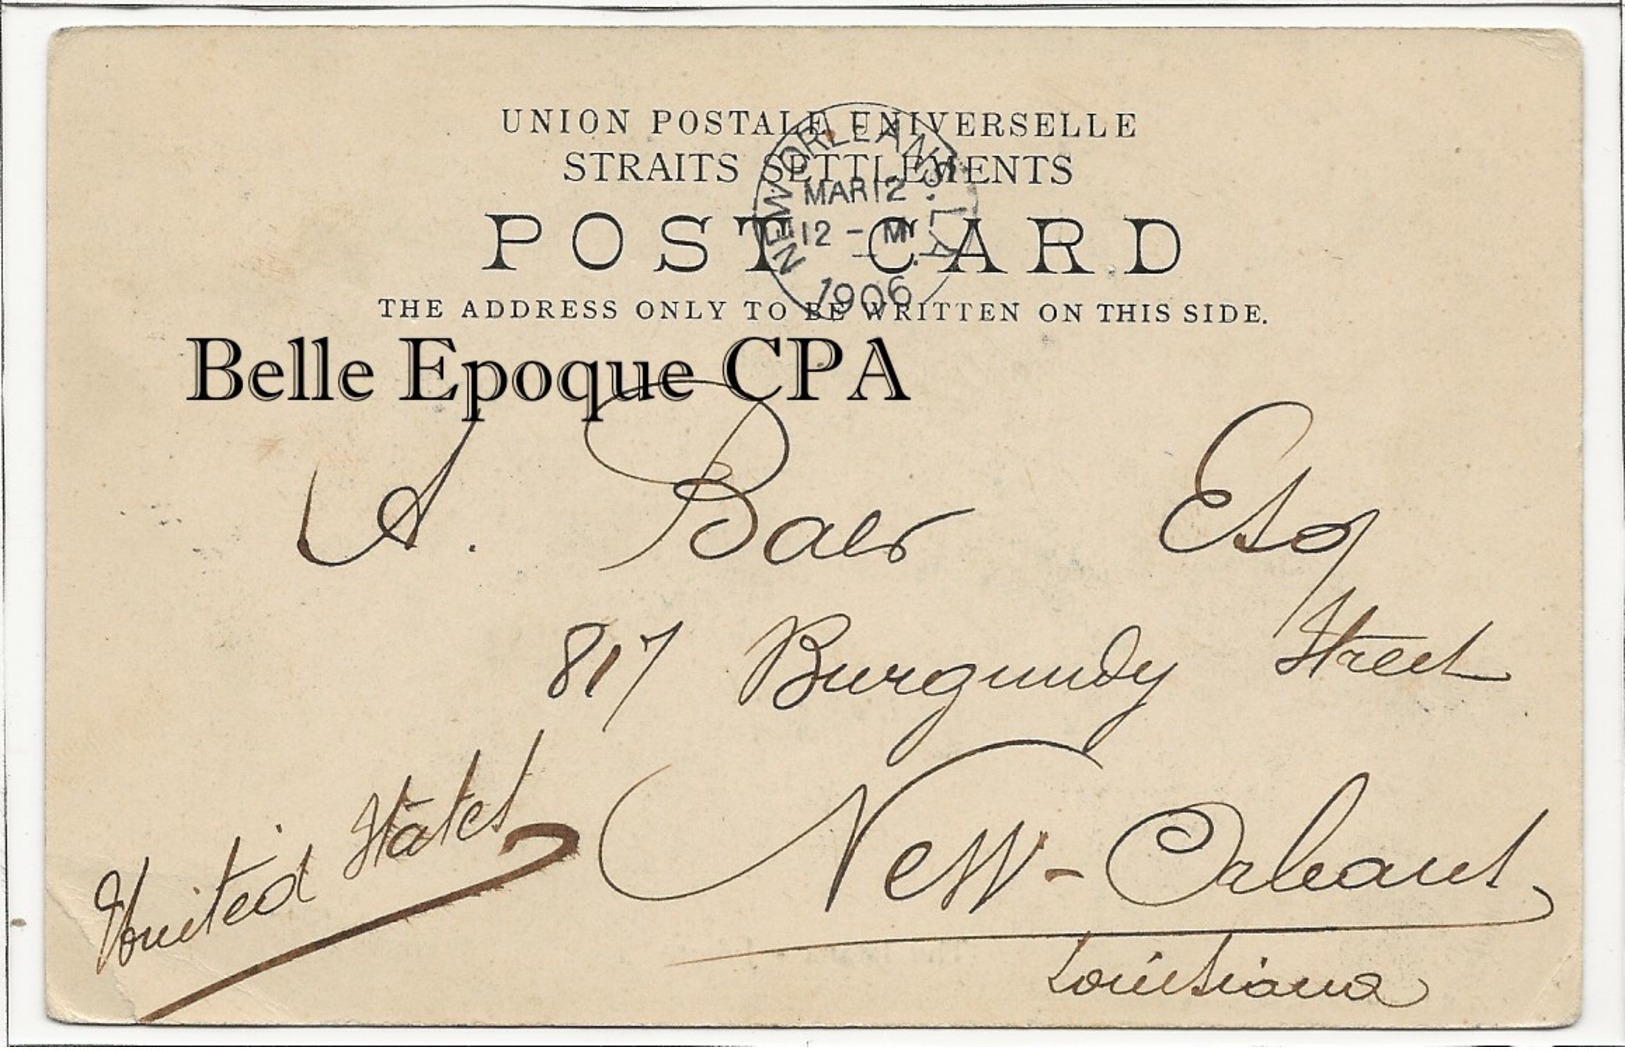 UNION POSTALE UNIVERSELLE
STRAITS SETTLEMENTS
POST CARD
THE ADDRESS ONLY TO BE WRITTEN ON THIS SIDE.
NEW ORLEANS, LA.
MAR 12
12 - M
1906
Belle Epoque CPA
A. Baer Esq
817 Burgundy Street
New-Orleans
Louisiana
United States